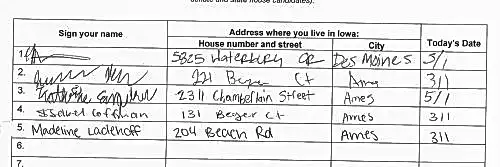 senate and state house candidates).
Sign your name Address where you live in Iowa: Today's Date
House number and street City
1. 5825 Waterbury CR Des Moines 5/1
2. 221 Beyer Ct Ames 3/1
3. 2311 Chamberlain Street Ames 5/1
4. Isabel Coffman 131 Beyer Ct Ames 3/1
5. Madeline Ladehoff 204 Beach Rd Ames 3/1
6.
7.